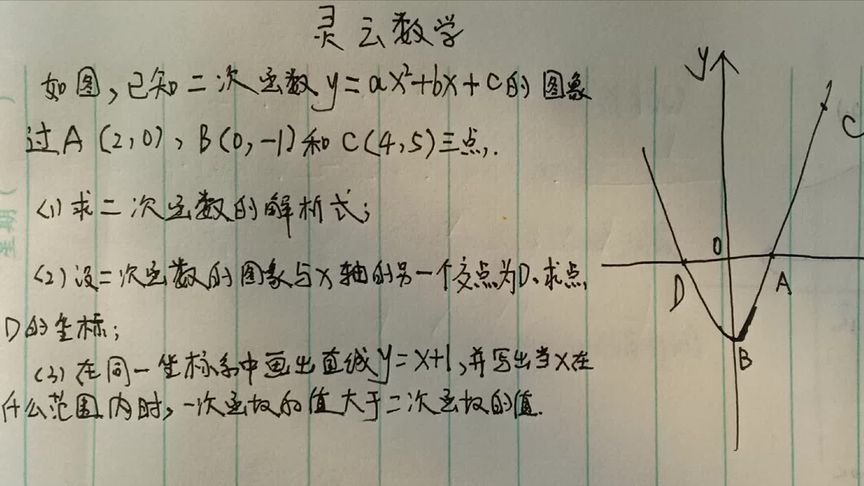 灵云数学
如图,已知二次函数y=ax²+bx+c的图象
过A(2,0),B(0,-1)和C(4,5)三点.
(1)求二次函数的解析式;
(2)设二次函数的图象与x轴的另一个交点为D、求点
D的坐标;
(3)在同一坐标系中画出直线y=x+1,并写出当x在
什么范围内时,一次函数的值大于二次函数的值.
y
C
O
D
A
B